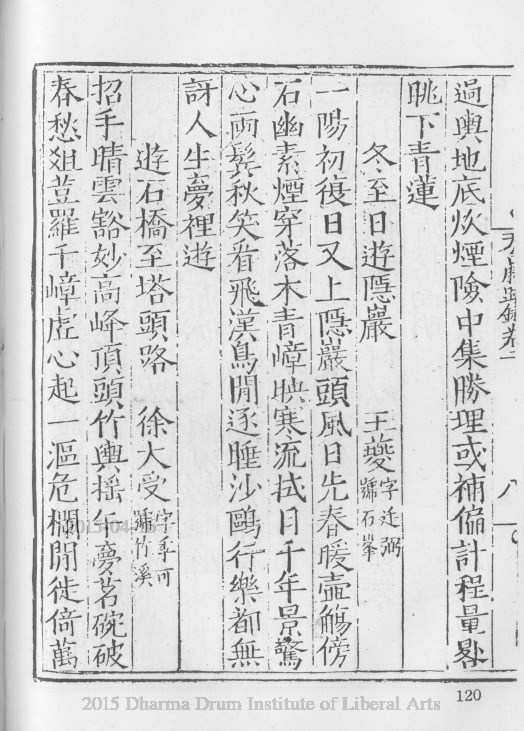 過輿地底炊煙險中集勝理或補偏計程量晷
眺下青蓮
冬至日遊隱巖　王夔 字廷弼 號石峯
一陽初復日又上隱巖頭風日先春暖壺觴傍
石幽素煙穿落木青嶂映寒流拭目千年景驚
心兩鬂秋笑看飛漢鳥閒逐睡沙鷗行樂都無
訝人生夢裡遊
遊石橋至塔頭路　徐大受 字季可 號竹溪
招手晴雲豁妙高峰頂頭竹輿揺午夢茗碗破
春愁爼荳羅千嶂虛心起一漚危欄閒徙倚萬
卷二
八
120
2015 Dharma Drum Institute of Liberal Arts